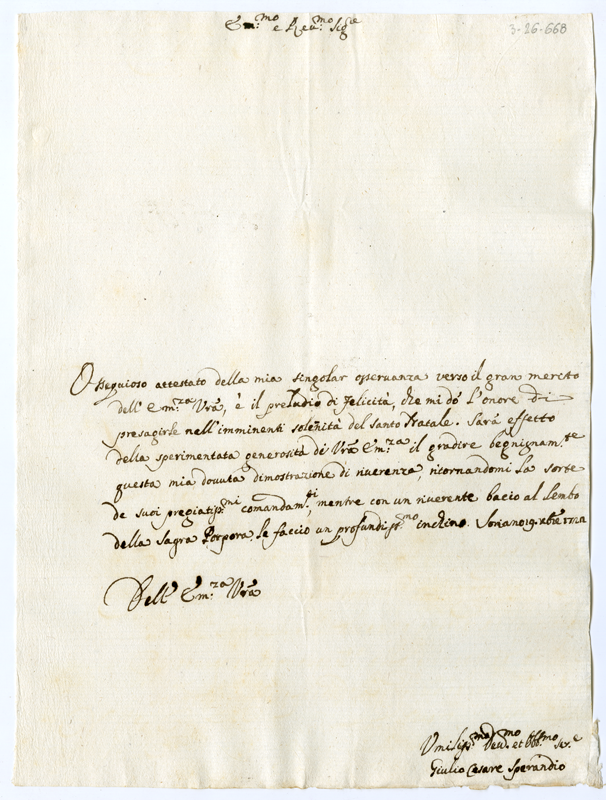 Em.mo e Reu.mo Sig.re
3-26-668
Ossequioso attestato della mia singolar osseruanza verso il gran merito
dell' Em.za Vrã, è il preludio di felicità, che mi dò l'onore di
presagirle nell'imminenti solẽnità del Santo Natale. Sarà effetto
della sperimentata generosità di Vrã Em.za il gradire begnignam.te
questa mia douuta dimostrazione di riuerenza, ricornandomi la sorte
de suoi pregiatiss.mi comandam.ti, mentre con un riuerente bacio al lembo
della Sagra Porpora, le faccio un profundiss.mo inchino. Soriano 19. Xbre
Dell' Em.za Vrã
Vmiliss.mo Deu.mo et Obb.mo Ser.e
Giulio Cesare Sperandio